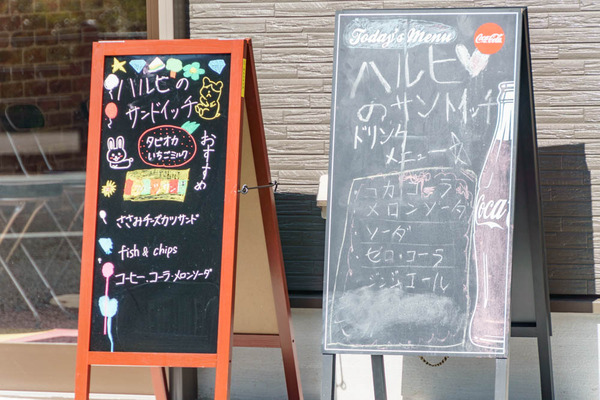 ハルヒの
サンドイッチ
おすすめ
タピオカ
いちごミルク
ささみチーズカツサンド
fish & chips
コーヒー・コーラ・メロンソーダ
Today's Menu
Coca-Cola
ハルヒ
のサンドイッチ
ドリンク
メニュー
コカ コーラ
メロンソーダ
ソーダ
ゼロ・コーラ
ジンジエール
Coca